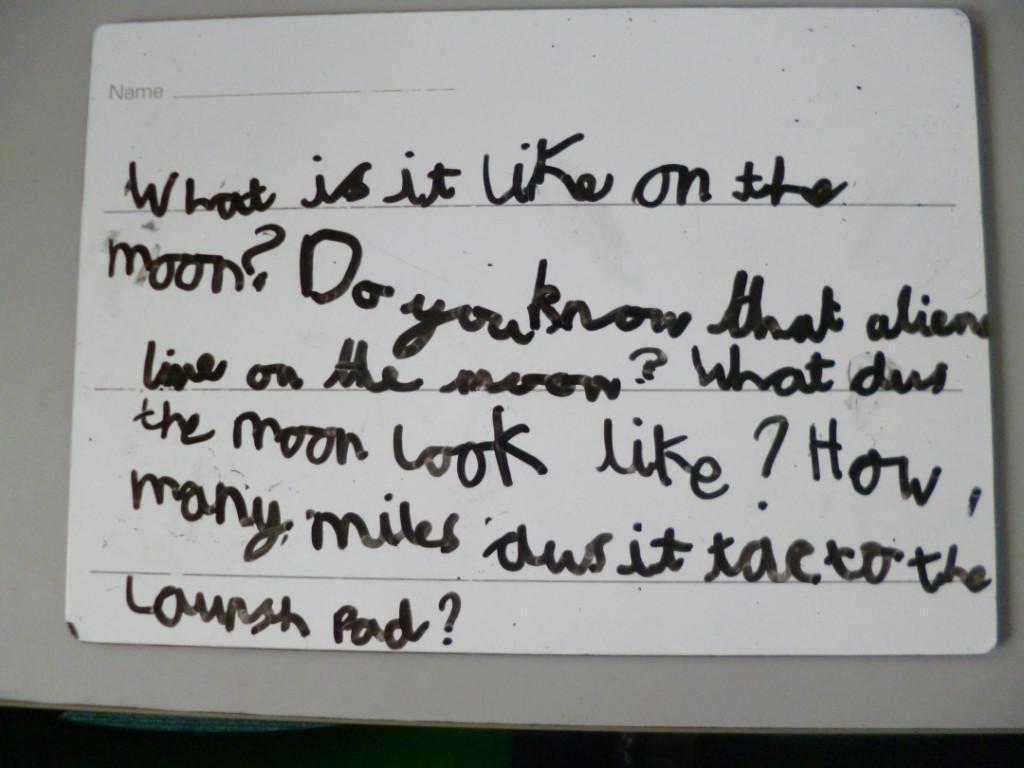 Name
What is it like on the
moon? Do you know that aliens
live on the moon? What dus
the moon look like? How
many miles dus it tac to the
Launsh pad?